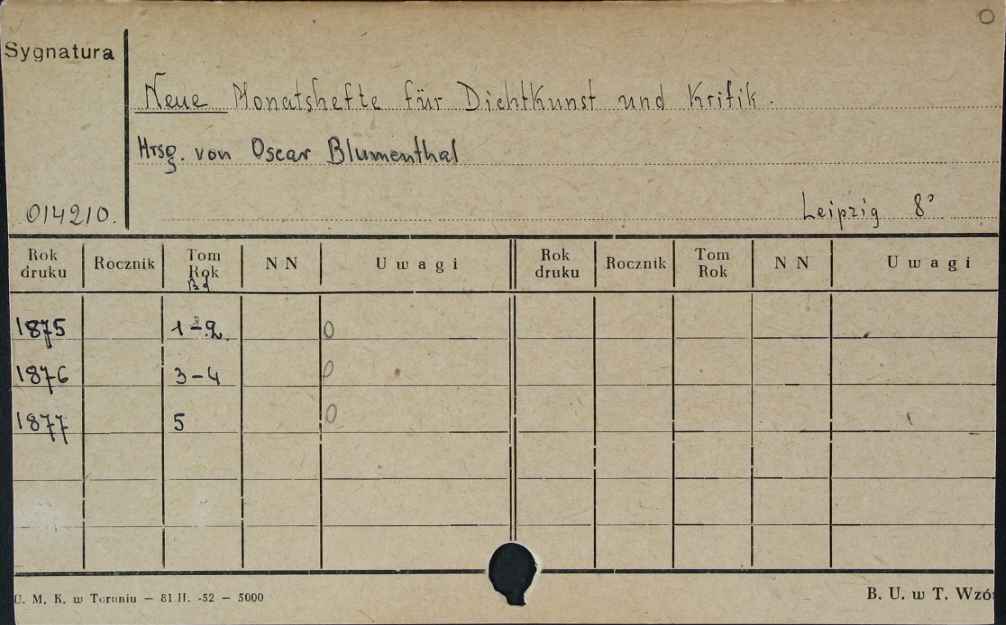 O
Sygnatura
Neue Monatshefte für Dichtkunst und Kritik.
Hrsg. von Oscar Blumenthal
014210.
Leipzig 8°
Rok druku Rocznik Tom Rok Bd NN Uwagi Rok druku Rocznik Tom Rok NN Uwagi
1875 1-2. 0
1876 3-4 0
1877 5 0
U. M. K. w Toruniu — 81 II. -52 — 5000
B. U. w T. Wzó